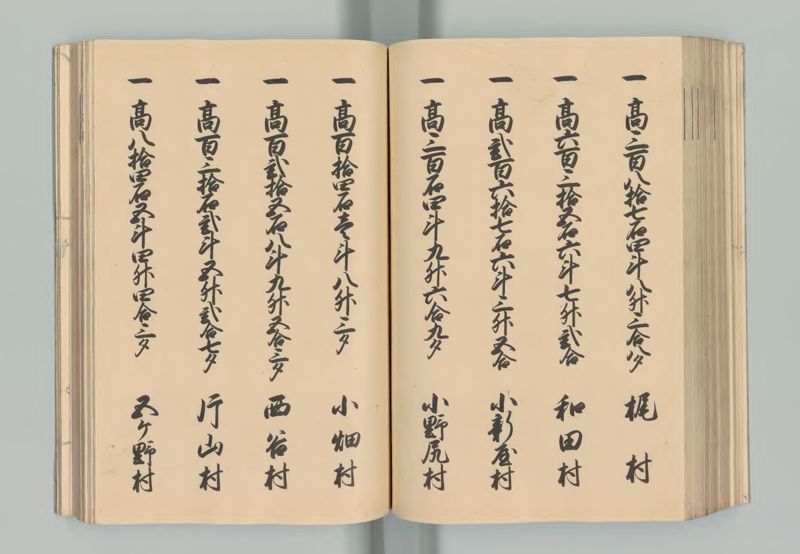 一 高三百八拾七石四斗八升三合八夕 梶村
一 高六百三拾五石六斗七升弐合 和田村
一 高弐百六拾七石六斗三升五合 小新屋村
一 高三百石四斗九升六合九夕 小野尻村
一 高百拾四石壱斗八升三夕 小畑村
一 高百弐拾五石八斗九升五合三夕 西谷村
一 高百三拾石弐斗五升弐合七夕 片山村
一 高八拾四石五斗四升四合三夕 五ケ野村